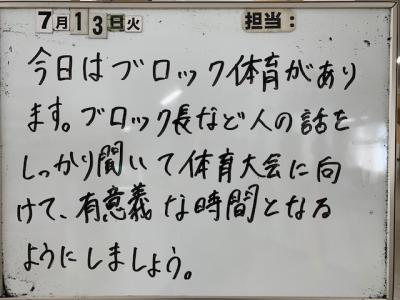 7月13日火 担当:
今日はブロック体育があり
ます。ブロック長など人の話を
しっかり聞いて体育大会に向
けて、有意義な時間となる
ようにしましょう。